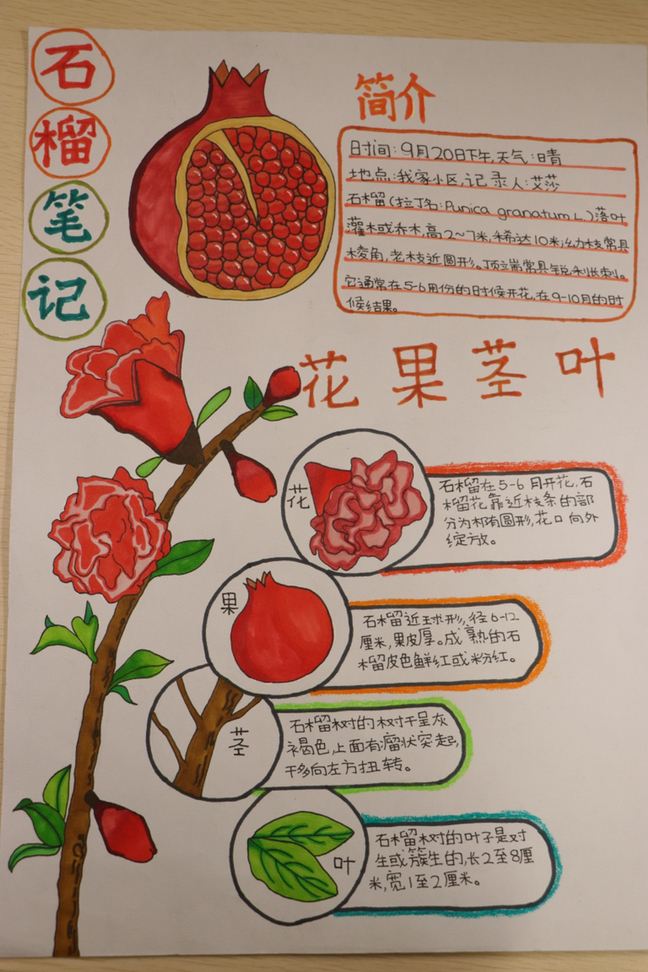 石
榴
笔
记
简介
时间:9月20日下午,天气:晴
地点:我家小区,记录人:艾莎
石榴(拉丁名:Punica granatum L.)落叶
灌木或乔木,高2~7米,稀达10米;幼枝常具
棱角,老枝近圆形。顶端常具锐利长刺。
它通常在5-6月份的时候开花,在9-10月的时
候结果。
花果茎叶
花
石榴在5-6月开花,石
榴花靠近枝条的部
分为椭圆形,花口向外
绽放。
果
石榴近球形,径6-12
厘米,果皮厚。成熟的石
榴皮色鲜红或粉红。
茎
石榴树的树干呈灰
褐色,上面有瘤状突起,
干多向左方扭转。
叶
石榴树的叶子是对
生或簇生的,长2至8厘
米,宽1至2厘米。